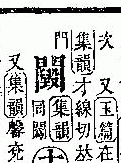 次　又玉篇在
集韻才線切𠀤
門
集韻
同
又集韻馨兗